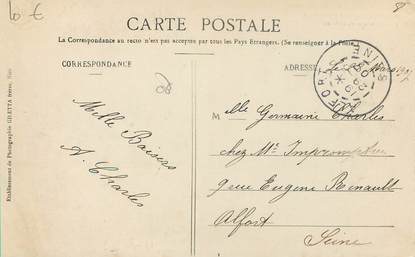 6 €
8
CARTE POSTALE
La Correspondance au recto n'est pas acceptée par tous les Pays Étrangers. (Se renseigner à la Poste)
CORRESPONDANCE
ADRESSE
Mars
Mille Baisers
A. Charles
Mlle Germaine Charles
chez Mr Impromptu
9 rue Eugene Rénault
Alfort
Seine
Etablissement de Photographie GILETTA frères, Nice